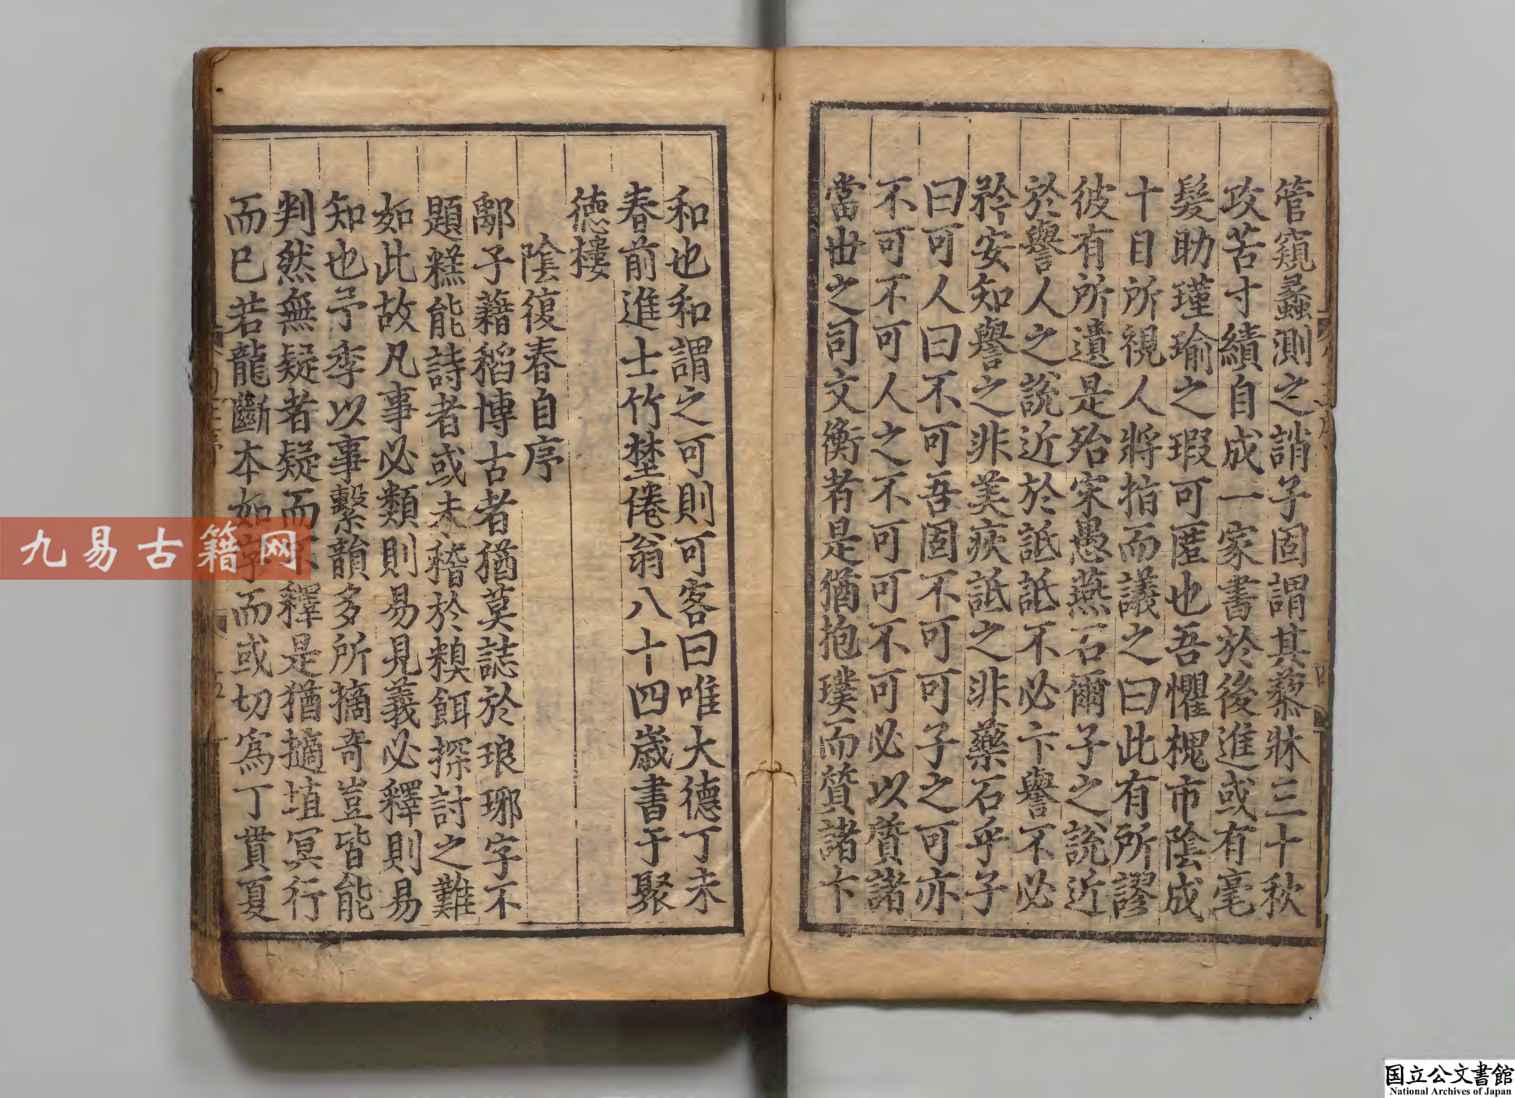 管窺蠡測之誚子固謂其藜牀三十秋
攻苦寸績自成一家書於後進或有毫
髮助瑾瑜之瑕可匿也吾懼槐市陰成
十目所視人將指而議之曰此有所謬
彼有所遺是殆宋愚燕石爾子之說近
於譽人之說近於詆詆不必卞譽不必
矜安知譽之非美疢詆之非藥石乎子
曰可人曰不可吾固不可可子之可亦
不可不可人之不可可不可必以質諸
當世之司文衡者是猶抱璞而質諸卞
和也和謂之可則可客曰唯大德丁未
春前進士竹埜倦翁八十四歲書于聚
德樓
陰復春自序
鄅子藉稻博古者猶莫誌於琅琊字不
題糕能詩者或未稽於糗餌探討之難
如此故凡事必類則易見義必釋則易
知也予季以事繫韻多所摘奇豈皆能
判然無疑者疑而釋是猶擿埴冥行
而已若龍斷本如字而或切爲丁貫夏
五
九易古籍网
国立公文書館
National Archives of Japan